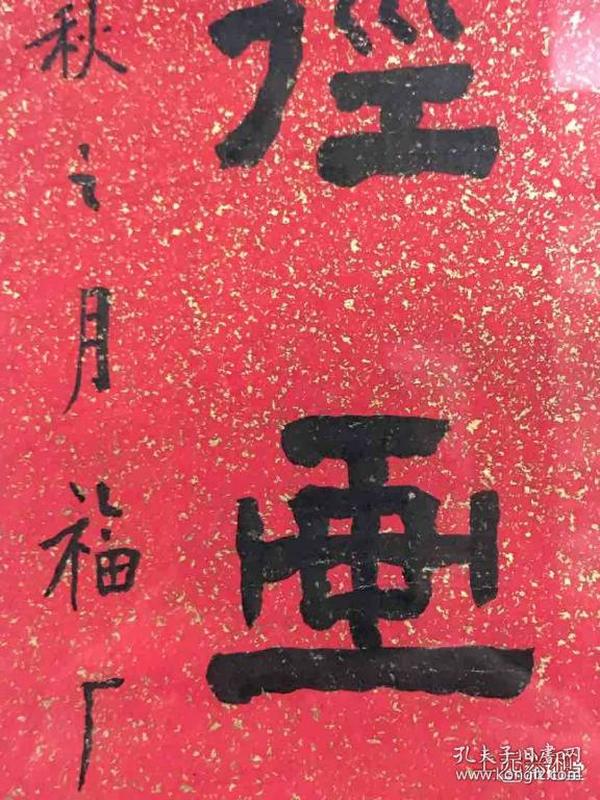 徑画
秋之月福厂
孔夫子旧书网
www.kongfz.com